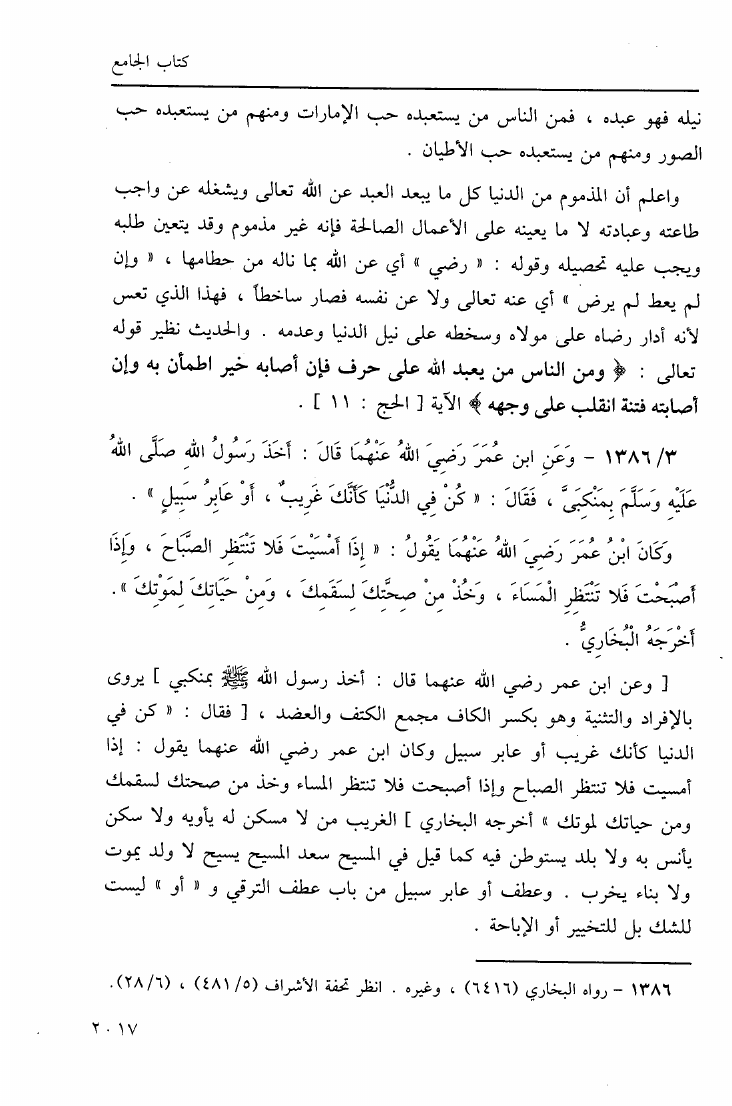 كتاب الجامع
نيله فهو عبده ، فمن الناس من يستعبده حب الإمارات ومنهم من يستعبده حب
الصور ومنهم من يستعبده حب الأطيان .
واعلم أن المذموم من الدنيا كل ما يبعد العبد عن الله تعالى ويشغله عن واجب
طاعته وعبادته لا ما يعينه على الأعمال الصالحة فإنه غير مذموم وقد يتعين طلبه
ويجب عليه تحصيله وقوله : « رضي » أي عن الله بما ناله من حطامها ، « وإن
لم يعط لم يرض » أي عنه تعالى ولا عن نفسه فصار ساخطاً ، فهذا الذي تعس
لأنه أدار رضاه على مولاه وسخطه على نيل الدنيا وعدمه . والحديث نظير قوله
تعالى : ﴿ ومن الناس من يعبد الله على حرف فإن أصابه خير اطمأن به وإن
أصابته فتنة انقلب على وجهه ﴾ الآية [ الحج : ١١ ] .
١٣٨٦/٣ - وَعَنِ ابن عُمَرَ رَضِيَ اللهُ عَنْهُمَا قَالَ : أَخَذَ رَسُولُ اللهِ صَلَّى اللهُ
عَلَيْهِ وَسَلَّمَ بِمَنْكِبَيَّ ، فَقَالَ : « كُنْ فِي الدُّنْيَا كَأَنَّكَ غَرِيبٌ ، أَوْ عَابِرُ سَبِيلٍ » .
وَكَانَ ابْنُ عُمَرَ رَضِيَ اللهُ عَنْهُمَا يَقُولُ : « إِذَا أَمْسَيْتَ فَلا تَنْتَظِرِ الصَّبَاحَ ، وَإِذَا
أَصْبَحْتَ فَلا تَنْتَظِرِ الْمَسَاءَ ، وَخُذْ مِنْ صِحَّتِكَ لِسَقَمِكَ ، وَمِنْ حَيَاتِكَ لِمَوْتِكَ ».
أَخْرَجَهُ الْبُخَارِيُّ .
[ وعن ابن عمر رضي الله عنهما قال : أخذ رسول الله ﷺ بمنكبي ] يروى
بالإفراد والتثنية وهو بكسر الكاف مجمع الكتف والعضد ، [ فقال : « كن في
الدنيا كأنك غريب أو عابر سبيل وكان ابن عمر رضي الله عنهما يقول : إذا
أمسيت فلا تنتظر الصباح وإذا أصبحت فلا تنتظر المساء وخذ من صحتك لسقمك
ومن حياتك لموتك » أخرجه البخاري ] الغريب من لا مسكن له يأويه ولا سكن
يأنس به ولا بلد يستوطن فيه كما قيل في المسيح سعد المسيح يسيح لا ولد يموت
ولا بناء يخرب . وعطف أو عابر سبيل من باب عطف الترقي و « أو » ليست
للشك بل للتخيير أو الإباحة .
١٣٨٦ - رواه البخاري (٦٤١٦) ، وغيره . انظر تحفة الأشراف (٤٨١/٥) ، (٢٨/٦).
٢٠١٧